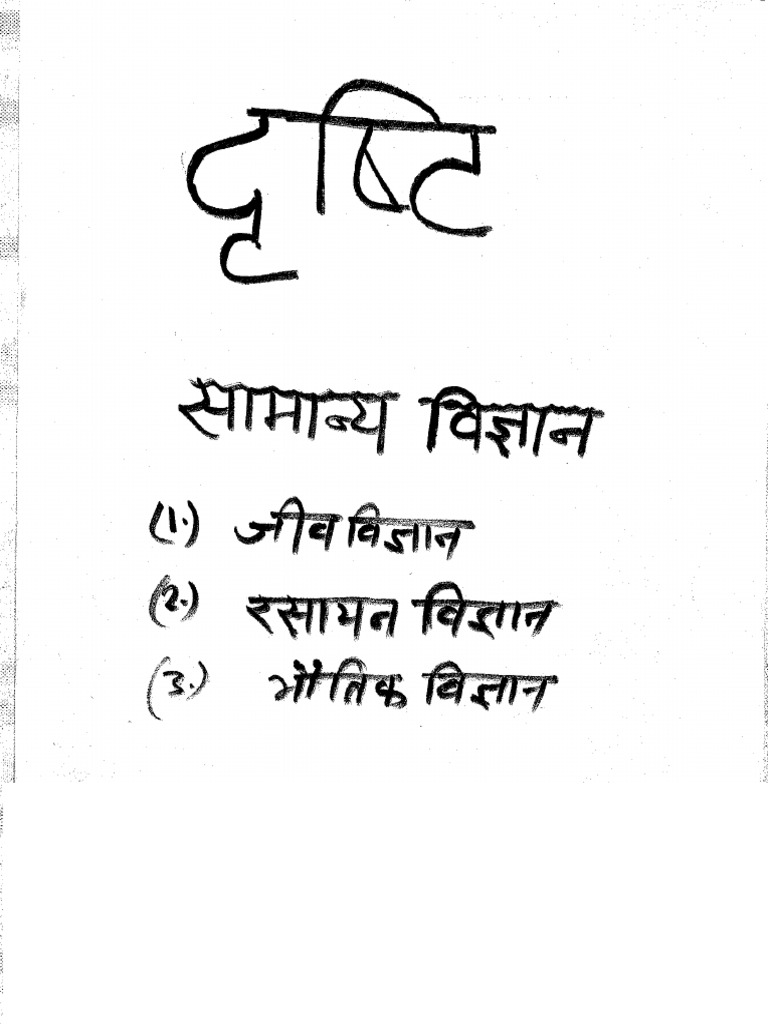 दृष्टि
सामान्य विज्ञान
(1.) जीव विज्ञान
(2.) रसायन विज्ञान
(3.) भौतिक विज्ञान